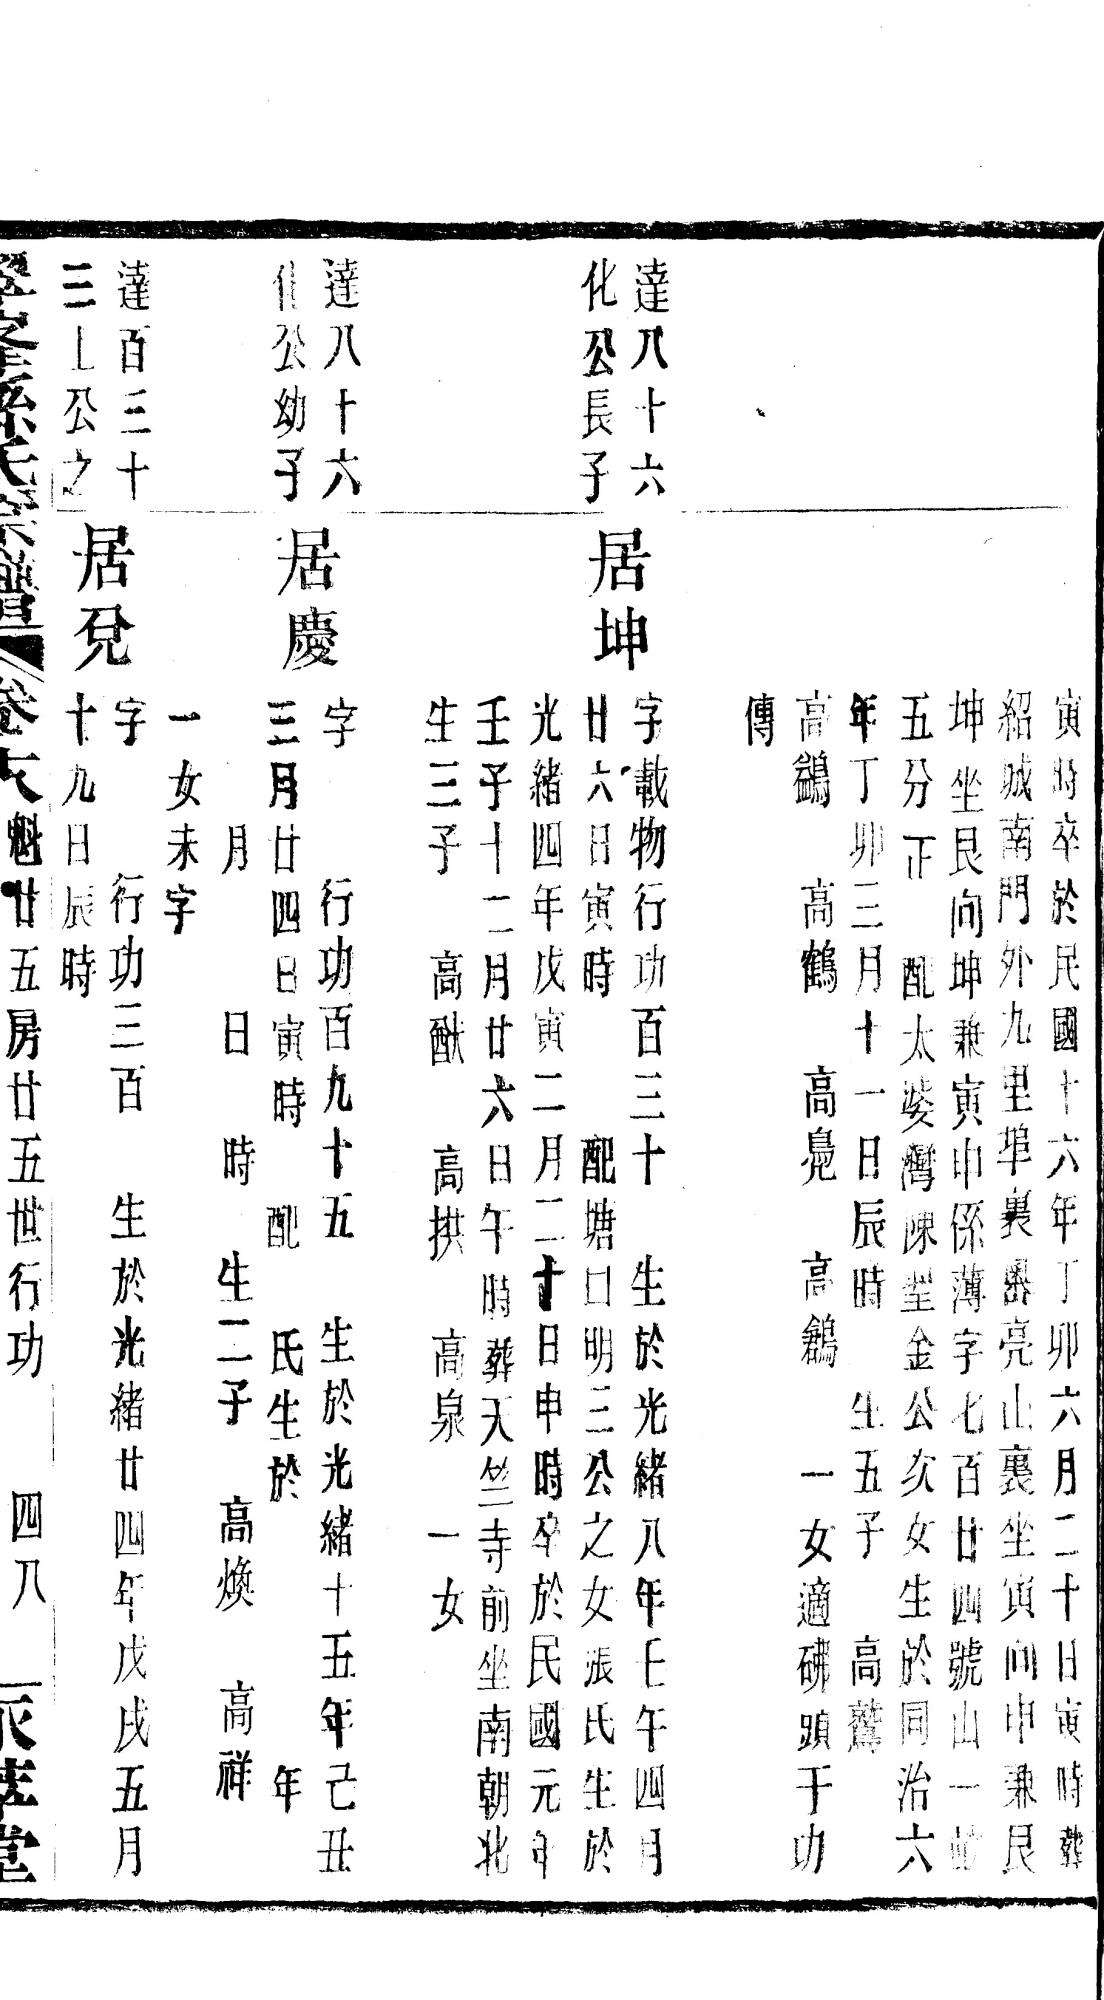 寅時卒於民國十六年丁卯六月二十日寅時葬
紹城南門外九里埠裏亮山裏坐寅向申兼艮
坤坐艮向坤兼寅申係薄字七百廿四號山一
五分正 配太婆灣陳金公次女生於同治六
年丁卯三月十一日辰時 生五子 高鷟
高鷁 高鶴 高鳧 高鶴 一女適硎頭于功
傳
達八十六
化公長子
居坤
字載物行功百三十 生於光緒八年壬午四月
廿六日寅時 配塘口明三公之女張氏生於
光緒四年戊寅二月二十日申時卒於民國元年
壬子十二月廿六日午時葬天竺寺前坐南朝北
生三子 高猷 高拱 高泉 一女
達八十六
化公幼子
居慶
字 行功百九十五 生於光緒十五年己丑
三月廿四日寅時 配 氏生於 年
月 日 時 生二子 高煥 高祥
一女未字
達百三十
三公之
居兌
字 行功三百 生於光緒廿四年戊戌五月
十九日辰時
孫氏宗譜 卷六 魁廿五房廿五世行功 四八 萃堂